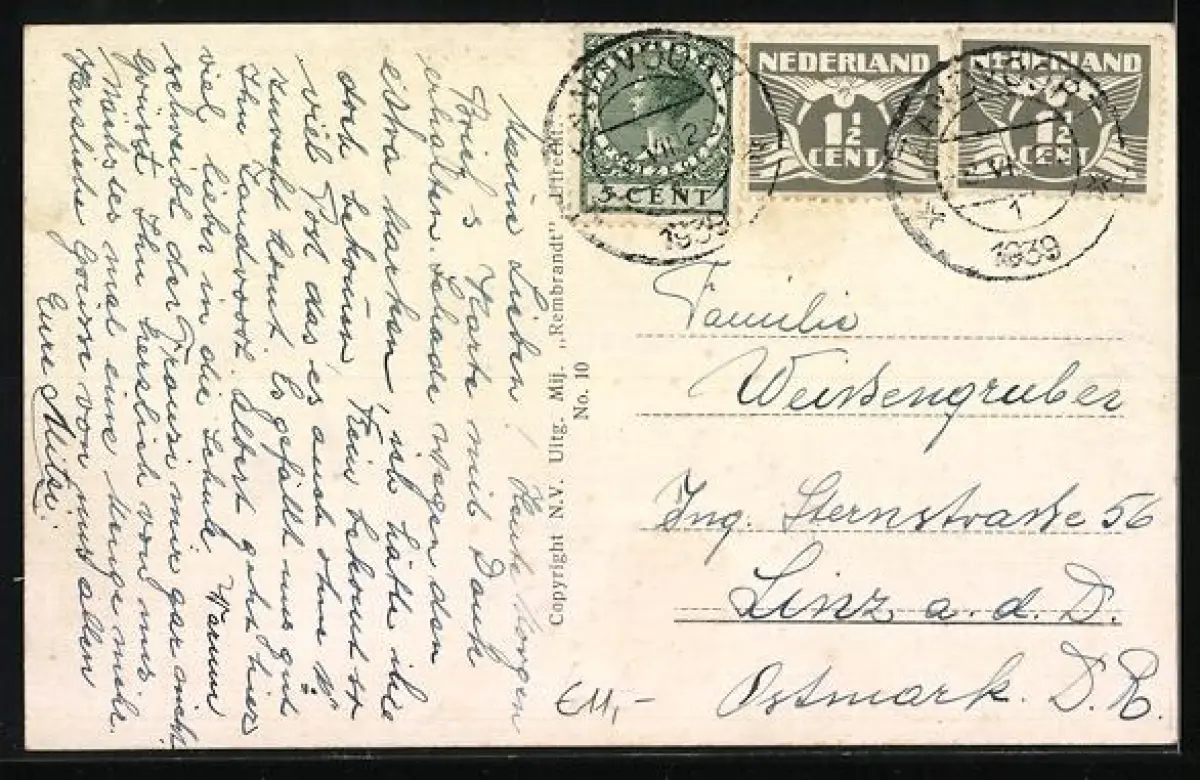 Meine Lieben! Heute Morgen
Brief & Karte mit Dank
erhalten. Schade wegen den
extra harken, ich hätte ihn
doch bekomm, Heini bekomt so
viel Post das es auch ohne №
zurecht komt. Es gefällt uns gut
Ihn Zandvoort. Albert geht hier
viel lieber in die Schule. Warum
schreibt der Franzi mir gar nicht
grüsst Ihn herslich von mir.
mal eine menge mehr.
Hersliche Grüsse von uns allen
Eure Mitzi.
Copyright N.V. Uitg. Mij. „Rembrandt" Utrecht.
No. 10
5 CENT
NEDERLAND
1½
CENT
NEDERLAND
1½
CENT
ZANDVOORT
1939
ZANDVOORT
1
1939
Familie
Weissengruber
Ing. Sternstrasse 56
Linz a. d. D.
Ostmark. D. R.
€11,-